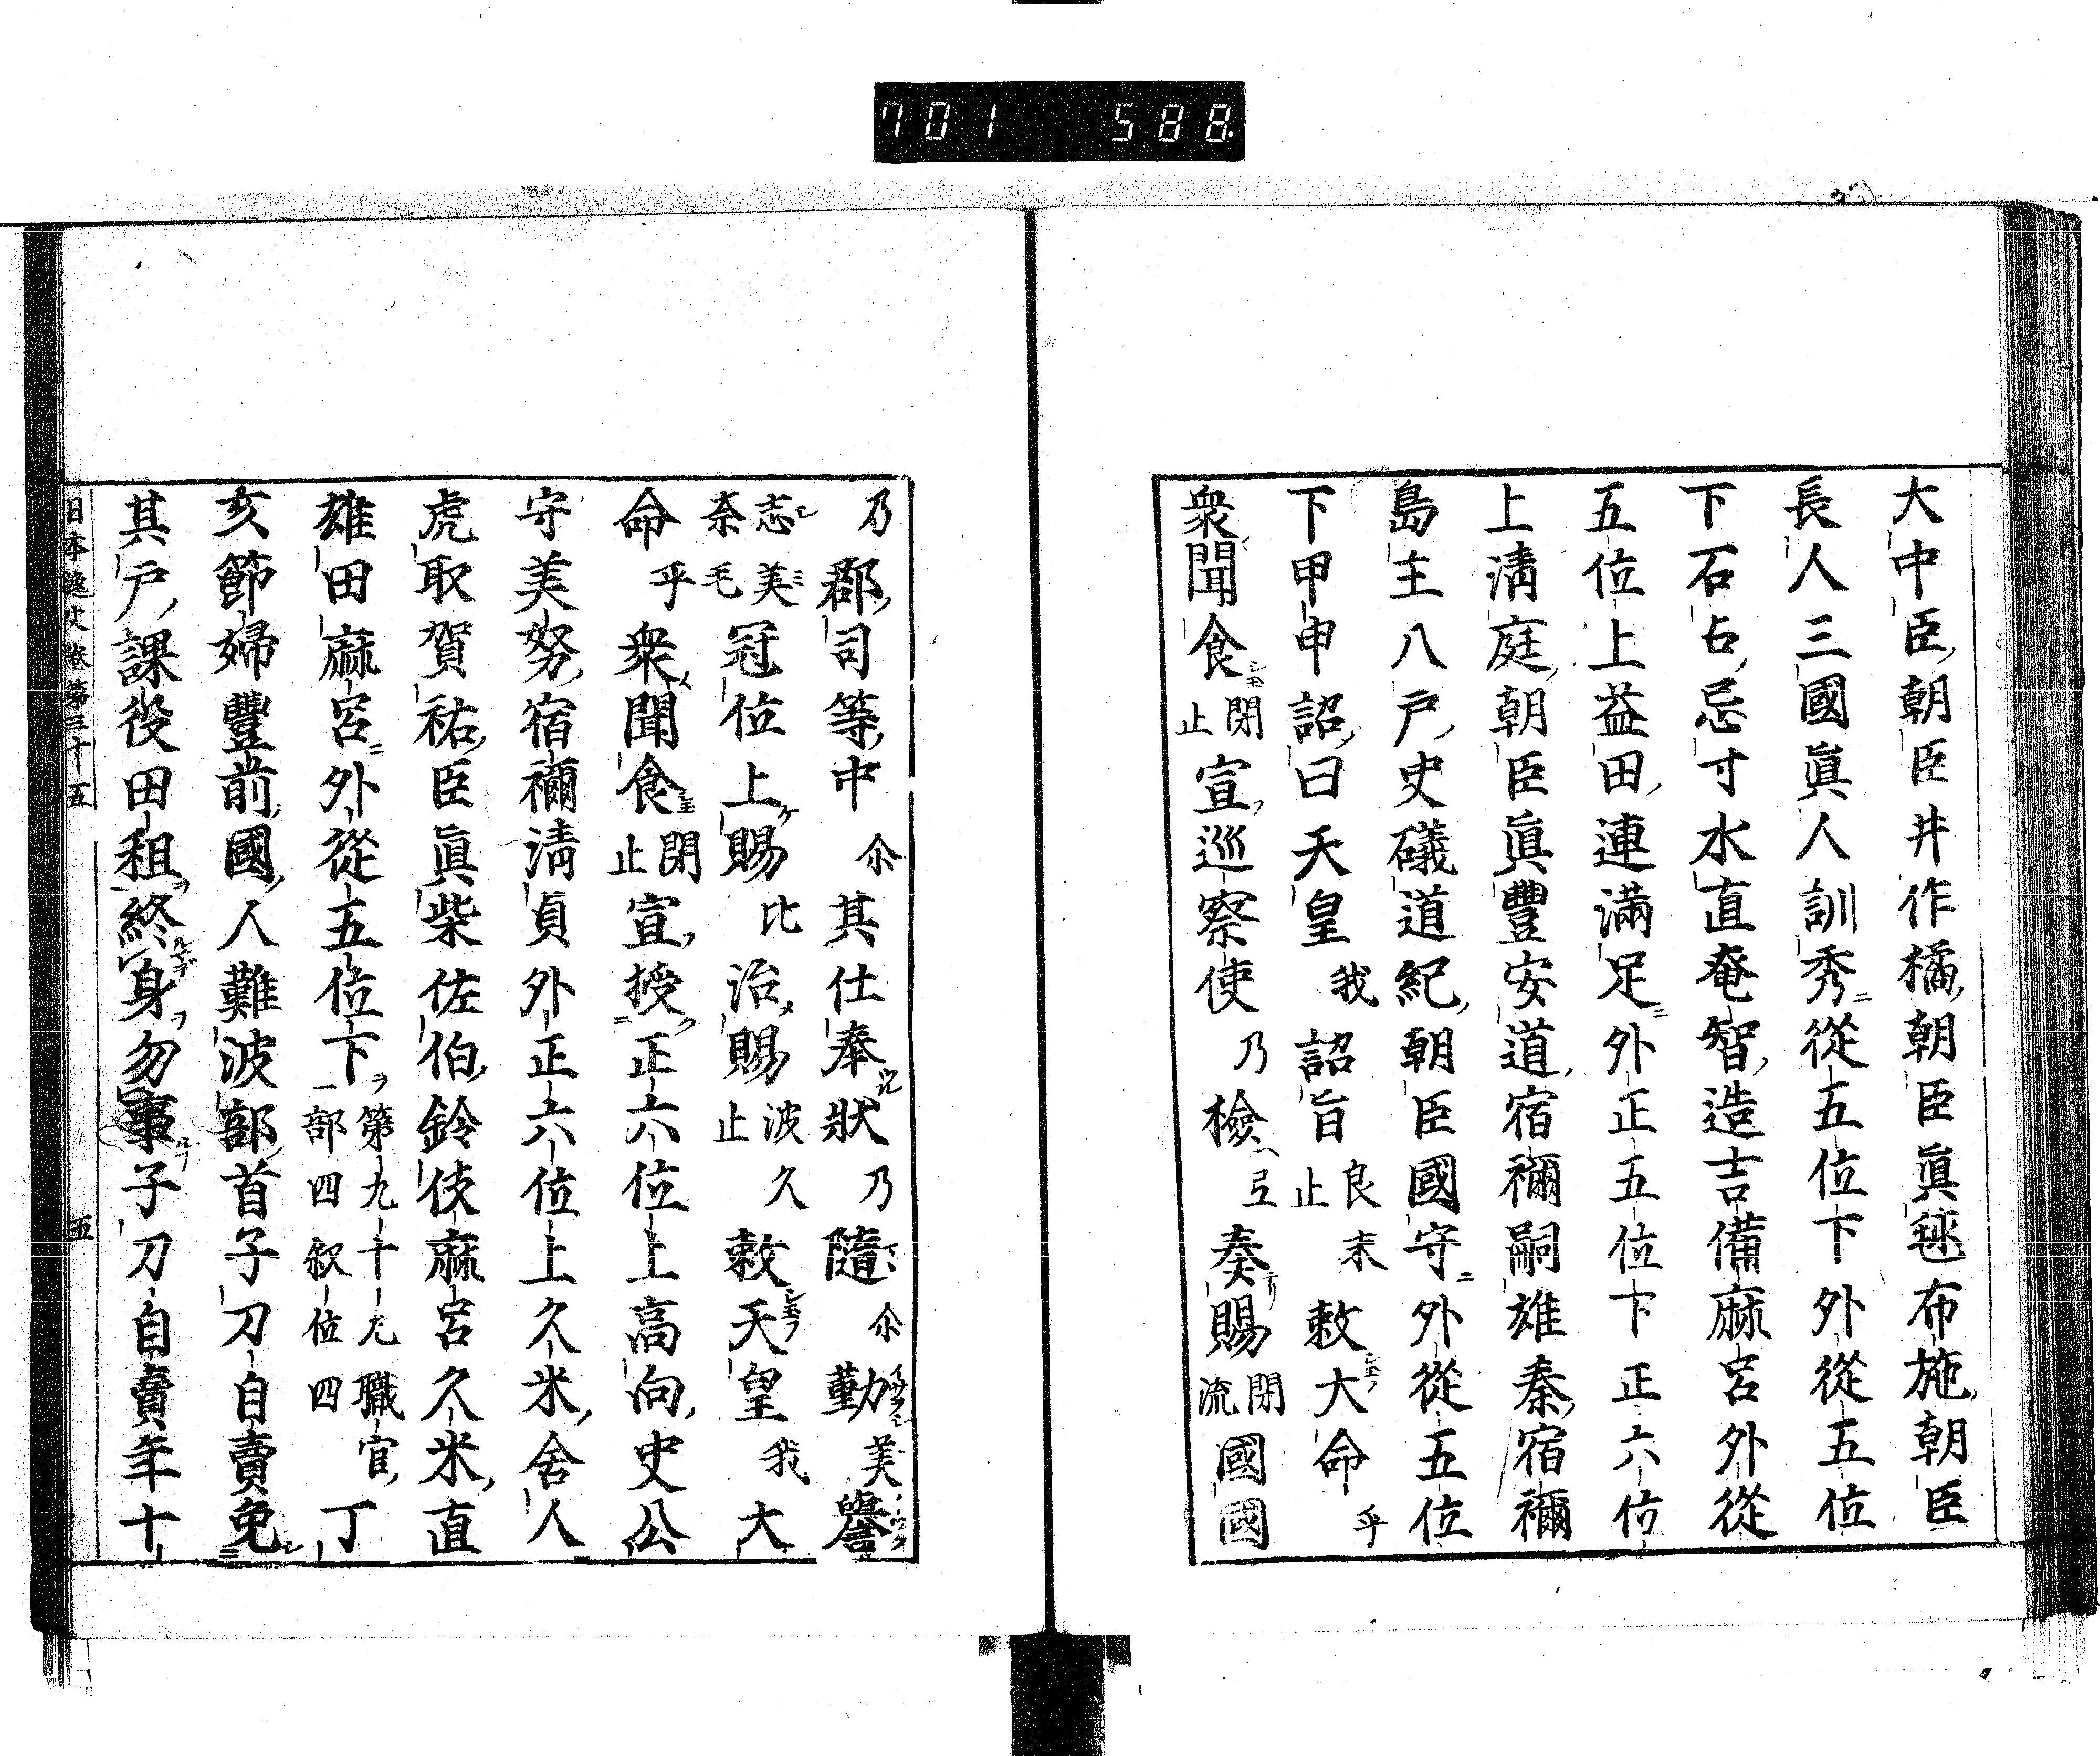 701 588
大中臣朝臣井作橘朝臣眞毬布施朝臣
長人三國眞人訓秀從五位下外從五位
下石占忌寸水直奄智造吉備麻呂外從
五位上益田連滿足外正五位下正六位
上淸庭朝臣眞豐安道宿禰嗣雄秦宿禰
島主八戸史礒道紀朝臣國守外從五位
下甲申詔曰天皇我詔旨良末止敕大命乎
衆聞食閇止宣巡察使乃檢弖奏賜閇流國國
乃郡司等中尒其仕奉狀乃隨尒勤美譽
志美奈毛冠位上賜比治賜波久止敕天皇我大
命乎衆聞食閇止宣授正六位上高向史公
守美努宿禰淸貞外正六位上久米舍人
虎取賀祐臣眞柴佐伯鈴伎麻呂久米直
雄田麻呂外從五位下第九十九職官部四敍位四丁
亥節婦豐前國人難波部首子刀自賣免
其戸課役田租終身勿事子刀自賣年十
日本逸史卷第三十五 五